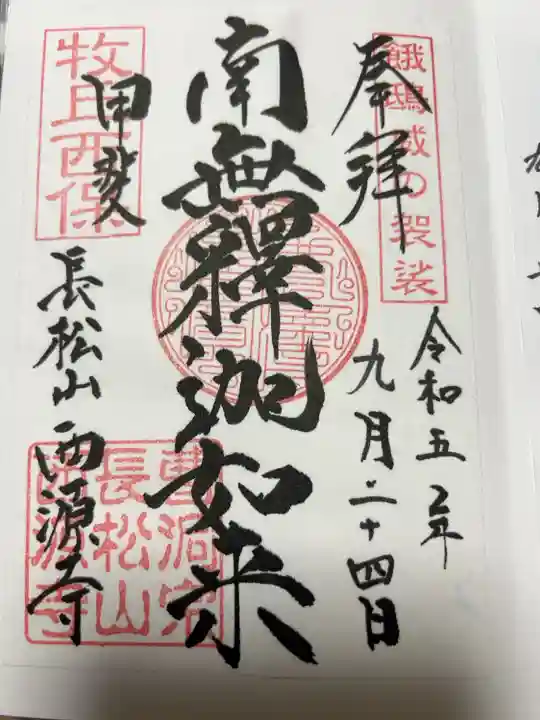 餓鴟威の袈裟
奉拝
令和五年
九月二十四日
南無釋迦如来
牧丘西保
甲斐
長松山西源寺
曹洞宗
長松山
西源寺